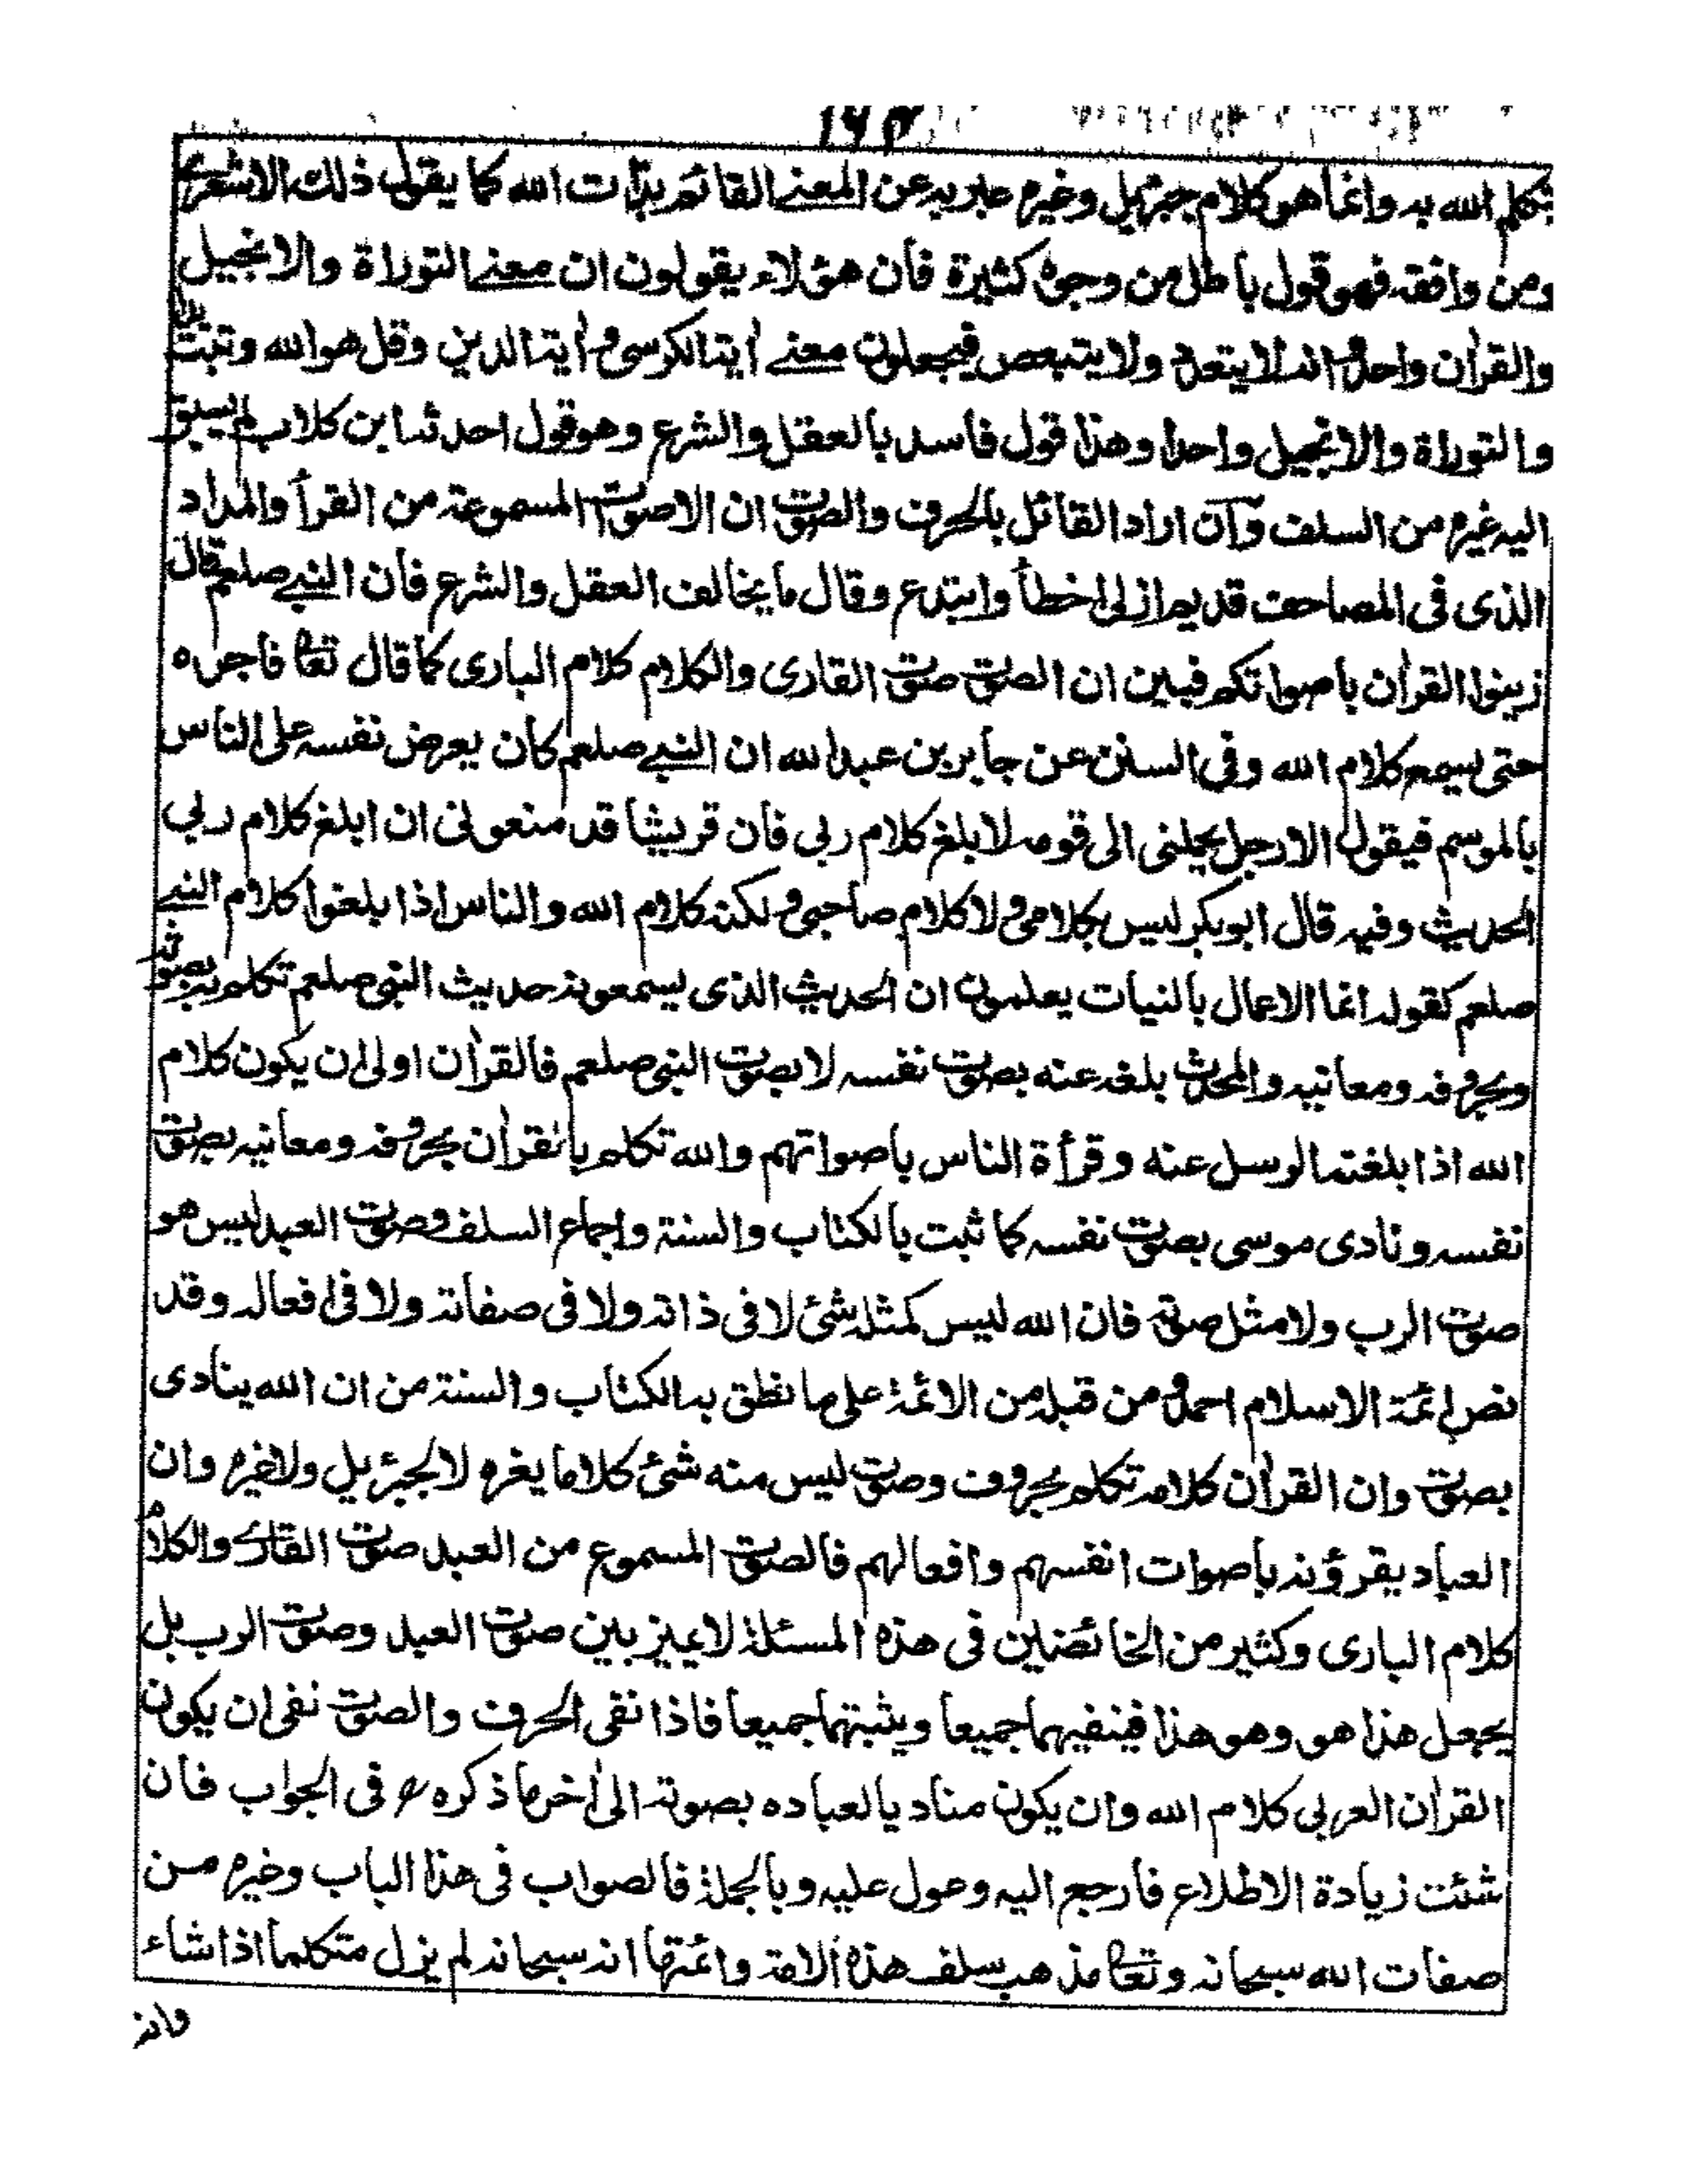 ١٦٣
يتكلم الله به وانما هو كلام جبرئيل وغيره عبر به عن المعنى القائم بذات الله كما يقول ذلك الاشعرى
ومن وافقه فهو قول باطل من وجوه كثيرة فان هؤلاء يقولون ان معنى التوراة والانجيل
والقرآن واحد وانه لا يتعدد ولا يتبعض فيجعلون معنى أية الكرسى وأية الدين وقل هو الله وتبت يدا
والتوراة والانجيل واحدا وهذا قول فاسد بالعقل والشرع وهو قول احدثه ابن كلاب لم يسبق
اليه غيره من السلف وان اراد القائل بالحرف والصوت ان الاصوات المسموعة من القرأ والمداد
الذى فى المصاحف قديم ازلى اخطأ وابتدع وقال ما يخالف العقل والشرع فان النبى صلعم قال
زينوا القرأن باصواتكم فبين ان الصوت صوت القارى والكلام كلام البارى كما قال تعا فاجره
حتى يسمع كلام الله وفى السنن عن جابر بن عبدالله ان النبى صلعم كان يعرض نفسه على الناس
بالموسم فيقول الا رجل يحملنى الى قومه لابلغ كلام ربى فان قريشا قد منعونى ان ابلغ كلام ربى
الحديث وفيه قال ابوبكر ليس بكلامى ولا كلام صاحبى ولكنه كلام الله والناس اذا بلغوا كلام النبى
صلعم كقوله انما الاعمال بالنيات يعلمون ان الحديث الذى يسمعونه حديث النبى صلعم تكلم به بصوته
وبحروفه ومعانيه والمحدث بلغه عنه بصوت نفسه لا بصوت النبى صلعم فالقرأن اولى ان يكون كلام
الله اذا بلغته الرسل عنه وقرأة الناس باصواتهم والله تكلم بالقرأن بحروفه ومعانيه بصوت
نفسه ونادى موسى بصوت نفسه كما ثبت بالكتاب والسنة واجماع السلف وصوت العبد ليس هو
صوت الرب ولا مثل صوته فان الله ليس كمثله شئ لا فى ذاته ولا فى صفاته ولا فى افعاله وقد
نص ائمة الاسلام احمد ومن قبله من الائمة على ما نطق به الكتاب والسنة من ان الله ينادى
بصوت وان القرأن كلامه تكلم بحروف وصوت ليس منه شئ كلاما يغره لا لجبرئيل ولا غيره وان
العباد يقرؤنه باصوات انفسهم وافعالهم فالصوت المسموع من العبد صوت القارئ والكلام
كلام البارى وكثير من الخائضين فى هذه المسئلة لا يميز بين صوت العبد وصوت الرب بل
يجعل هذا هو وهو هذا فينفيهما جميعا ويثبتهما جميعا فاذا نفى الحرف والصوت نفى ان يكون
القرأن العربى كلام الله وان يكون مناديا لعباده بصوته الى أخر ما ذكره فى الجواب فان
شئت زيادة الاطلاع فارجع اليه وعول عليه وبالجملة فالصواب فى هذا الباب وغيره من
صفات الله سبحانه وتعا مذهب سلف هذه الامة وائمتها انه سبحانه لم يزل متكلما اذا شاء
وانه